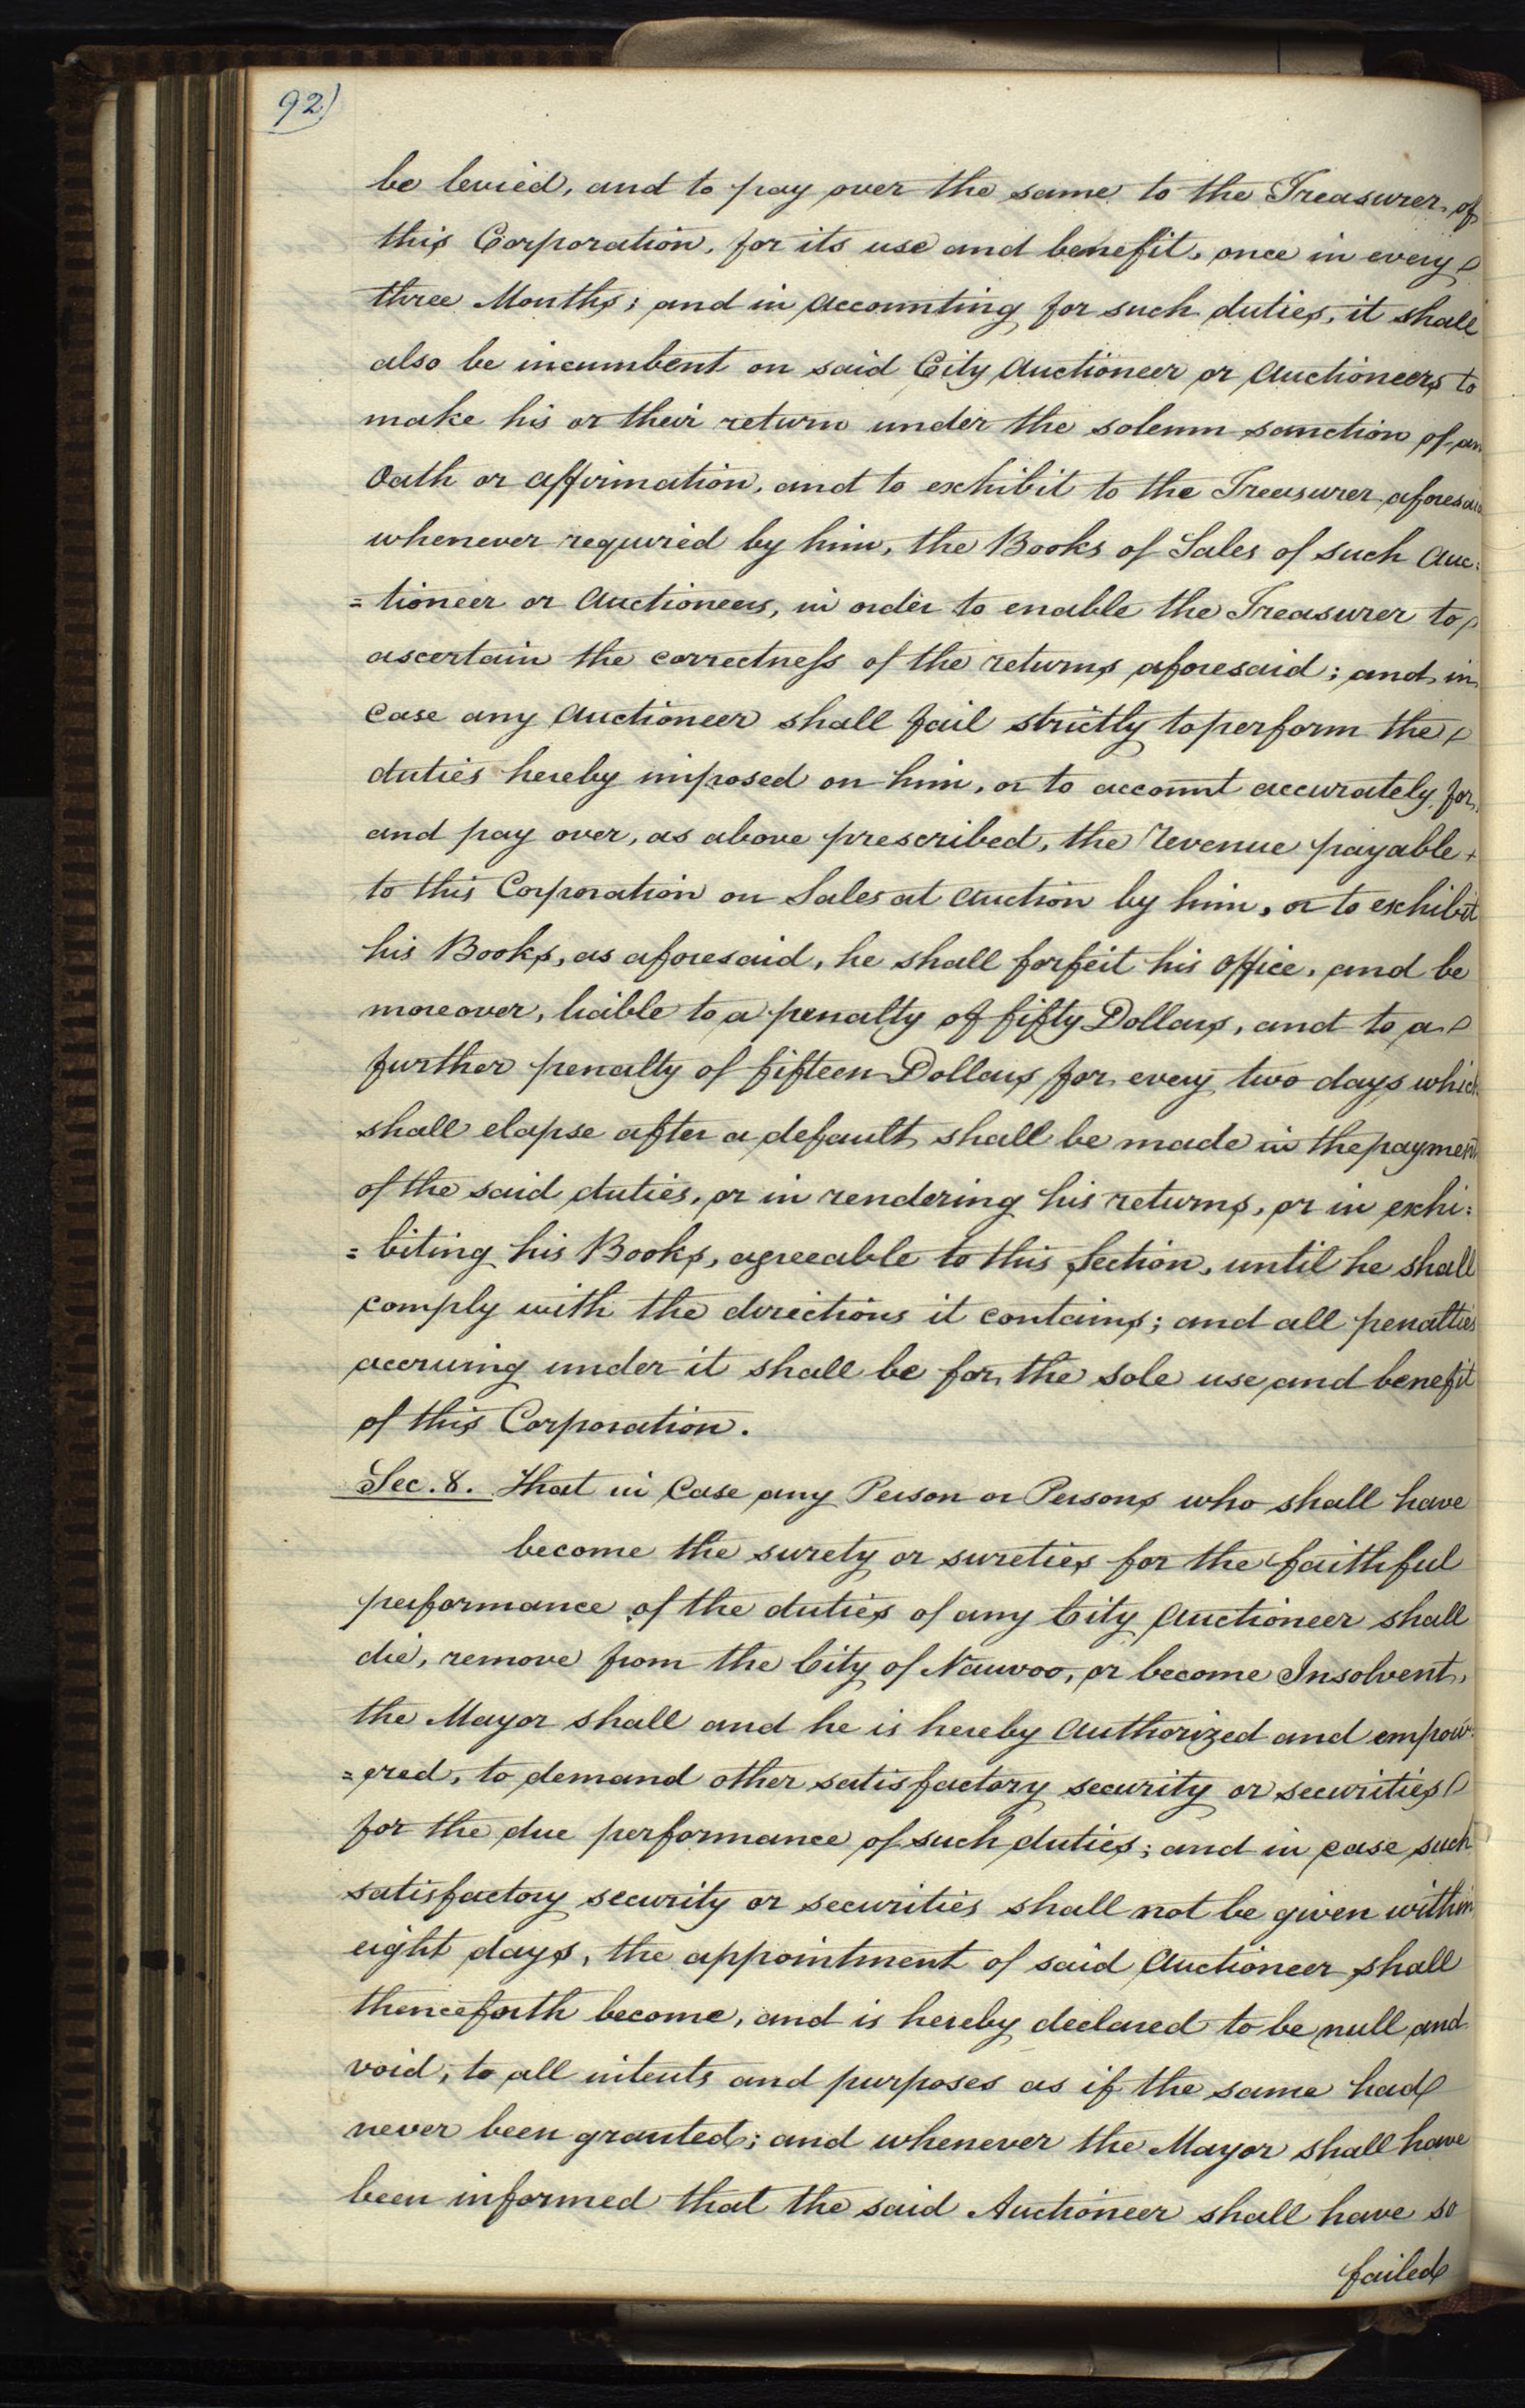 92)
be levied, and to pay over the same to the Treasurer of
this Corporation, for its use and benefit, once in every
three Months; and in accounting for such duties, it shall
also be incumbent on said City Auctioneer or Auctioneers to
make his or their return under the solemn sanction of an
Oath or affirmation, and to exhibit to the Treasurer aforesaid
whenever requried by him, the Books of Sales of such Auc:
=tioneer or Auctioneers, in order to enable the Treasurer to
ascertain the correctneſs of the returns aforesaid; and in
case any Auctioneer shall fail strictly to perform the
duties hereby imposed on him, or to account accurately for,
and pay over, as above prescribed, the Revenue payable
to this Corporation on Sales at Auction by him, or to exhibit
his Books, as aforesaid, he shall forfeit his office, and be
moreover, liable to a penalty of fifty Dollars, and to a
further penalty of fifteen Dollars for every two days which
shall elapse after a default shall be made in the payment
of the said duties, or in rendering his returns, or in exhi:
=biting his Books, agreeable to this Section, until he shall
comply with the directions it contains; and all penalties
accruing under it shall be for the sole use and benefit
of this Corporation.
Sec. 8. That in Case any Person or Persons who shall have
become the surety or sureties for the faithful
performance of the duties of any City Auctioneer shall
die, remove from the City of Nauvoo, or become Insolvent,
the Mayor shall and he is hereby Authorized and empow:
=ered, to demand other satisfactory security or securities
for the due performance of such duties; and in case such
satisfactory security or securities shall not be given within
eight days, the appointment of said Auctioneer shall
thenceforth become, and is hereby declared to be null and
void, to all intents and purposes as if the same had
never been granted; and whenever the Mayor shall have
been informed that the said Auctioneer shall have so
failed